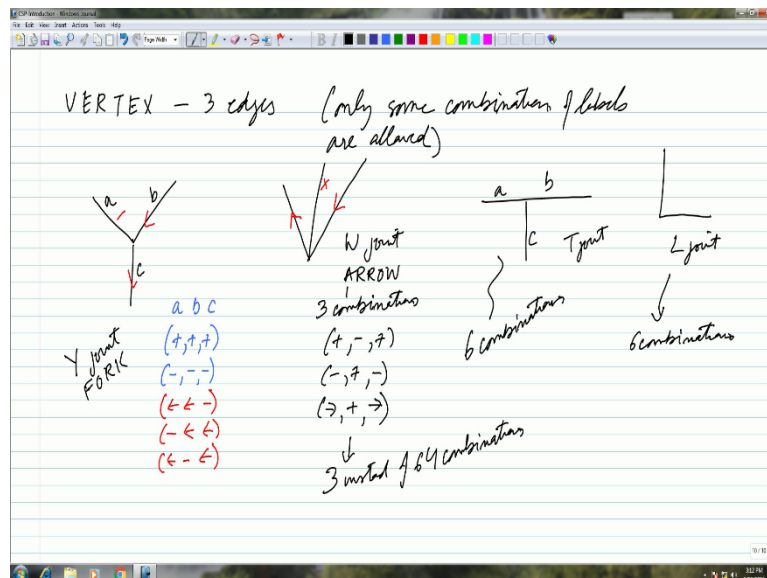 CSP Introduction - Windows Journal
File Edit View Insert Actions Tools Help
Page Width
VERTEX - 3 edges (only some combinations of labels
are allowed)
a b
c
Y joint
FORK
a b c
(+,+,+)
(-,-,-)
(← ← -)
(- ← ←)
(← - ←)
W joint
ARROW
3 combinations
(+,-,+)
(-,+,-)
(→,+,→)
3 instead of 64 combinations
a b
c
T joint
6 combinations
L joint
6 combinations
10/10
3:12 PM